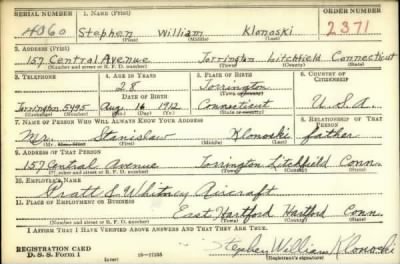 SERIAL NUMBER 1. NAME (Print) ORDER NUMBER
4060 Stephen William Klonoski 2371
(First) (Middle) (Last)
2. ADDRESS (Print)
157 Central Avenue Torrington Litchfield Connecticut
(Number and street or R. F. D. number) (Town) (County) (State)
3. TELEPHONE 4. AGE IN YEARS 5. PLACE OF BIRTH 6. COUNTRY OF CITIZENSHIP
28 Torrington
DATE OF BIRTH (Town or county)
Torrington 5495 Aug. 16 1912 Connecticut U.S.A.
(Exchange) (Number) (Mo.) (Day) (Yr.) (State or country)
7. NAME OF PERSON WHO WILL ALWAYS KNOW YOUR ADDRESS 8. RELATIONSHIP OF THAT PERSON
Mr. Stanislaw Klonoski father
(First) (Middle) (Last)
9. ADDRESS OF THAT PERSON
157 Central Avenue Torrington Litchfield Conn.
(Number and street or R. F. D. number) (Town) (County) (State)
10. EMPLOYER'S NAME
Pratt & Whitney Aircraft
11. PLACE OF EMPLOYMENT OR BUSINESS
East Hartford Hartford Conn.
(Number and street or R. F. D. number) (Town) (County) (State)
I AFFIRM THAT I HAVE VERIFIED ABOVE ANSWERS AND THAT THEY ARE TRUE.
Stephen William Klonoski
REGISTRATION CARD
D. S. S. Form 1 (over) 16-17105 (Registrant's signature)